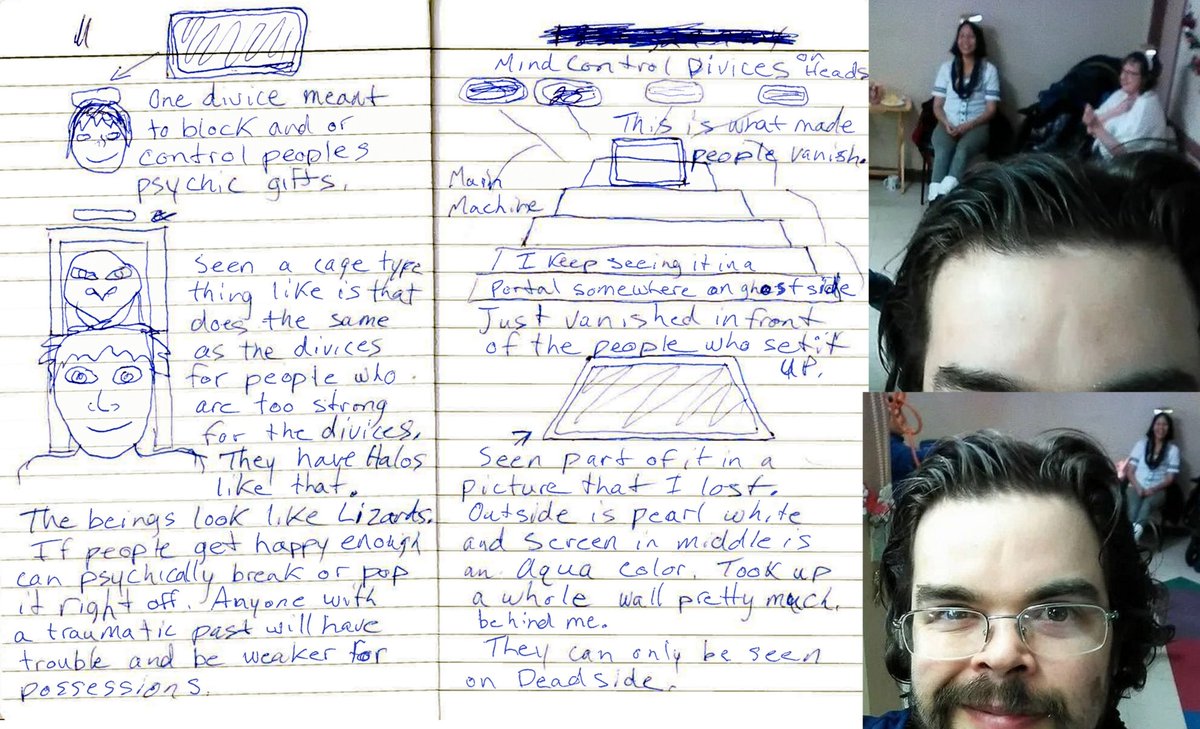 One divice meant
to block and or
control peoples
psychic gifts.
Seen a cage type
thing like is that
does the same
as the divices
for people who
are too strong
for the divices.
They have Halos
like that.
The beings look like Lizards.
If people get happy enough
can psychically break or pop
it right off. Anyone with
a traumatic past will have
trouble and be weaker for
possessions.
Mind Control Divices on Heads
This is what made
people vanish.
Main
Machine
I keep seeing it in a
Portal somewhere on ghost side
Just vanished in front
of the people who set it
up.
Seen part of it in a
picture that I lost.
Outside is pearl white
and screen in middle is
an Aqua color. Took up
a whole wall pretty much.
behind me.
They can only be seen
on Deadside.